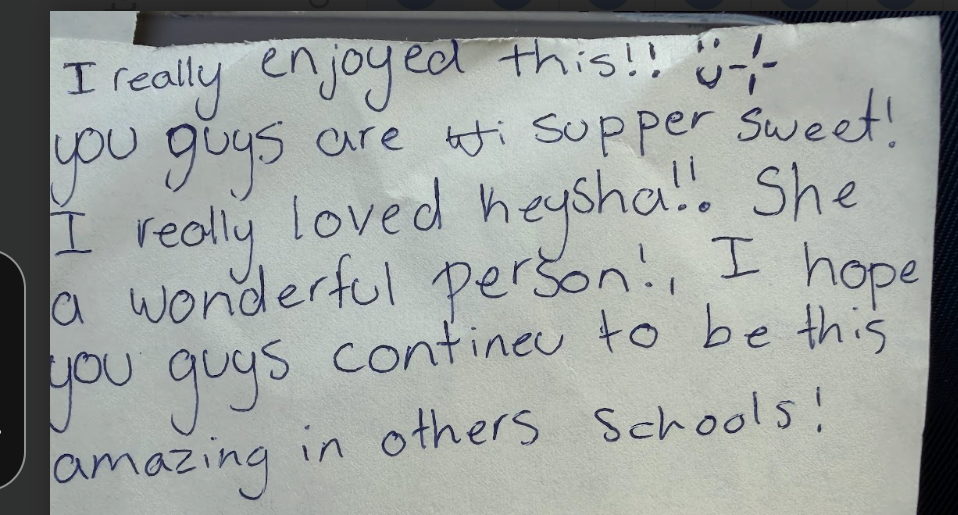 I really enjoyed this!! ü
you guys are supper sweet!
I really loved keysha!!. She
a wonderful person!, I hope
you guys contineu to be this
amazing in others schools!